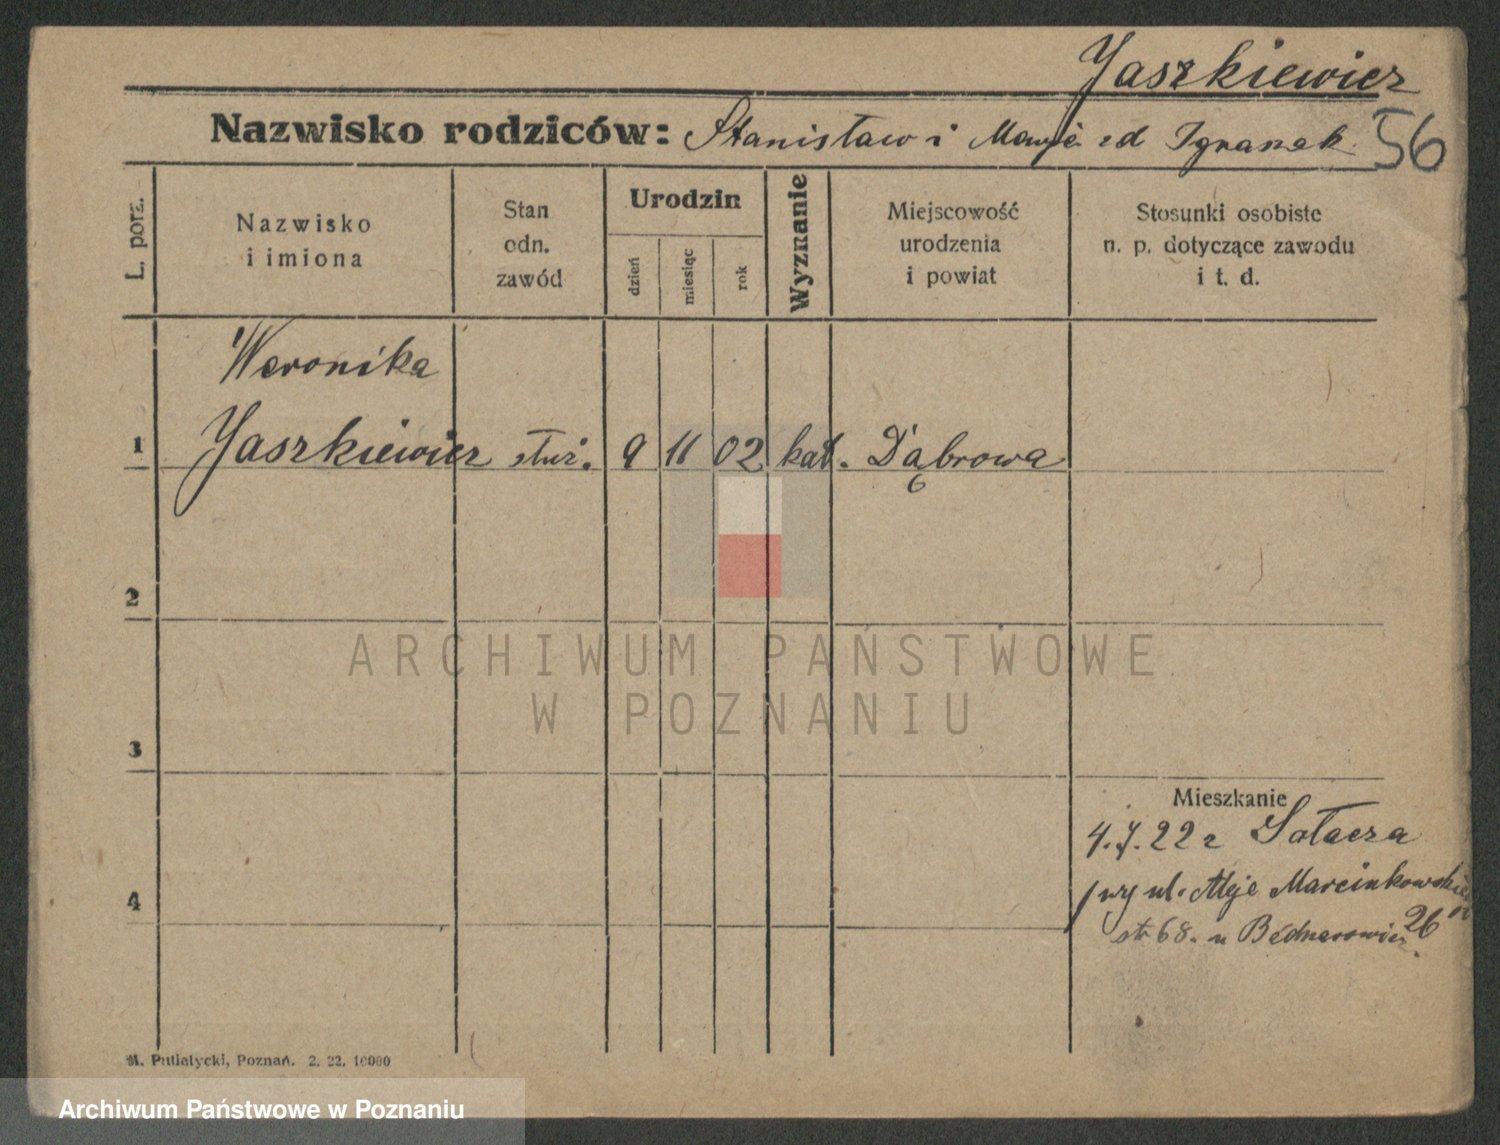 Jaszkiewicz
Nazwisko rodziców: Stanisław i Marje zd Ignasek
56
L. porz.
Nazwisko
i imiona
Stan
odn.
zawód
Urodzin
dzień
miesiąc
rok
Wyznanie
Miejscowość
urodzenia
i powiat
Stosunki osobiste
n. p. dotyczące zawodu
i t. d.
Weronika
1 Jaszkiewicz służ. 9 11 02 kat. Dąbrowa
2
3
4
Mieszkanie
4.7.22 z Sołacza
przy ul. Aleje Marcinkowskiego
26
str 68. u Bednarowicz.
M. Putiatycki, Poznań. 2. 22. 10000
ARCHIWUM PAŃSTWOWE
W POZNANIU
Archiwum Państwowe w Poznaniu